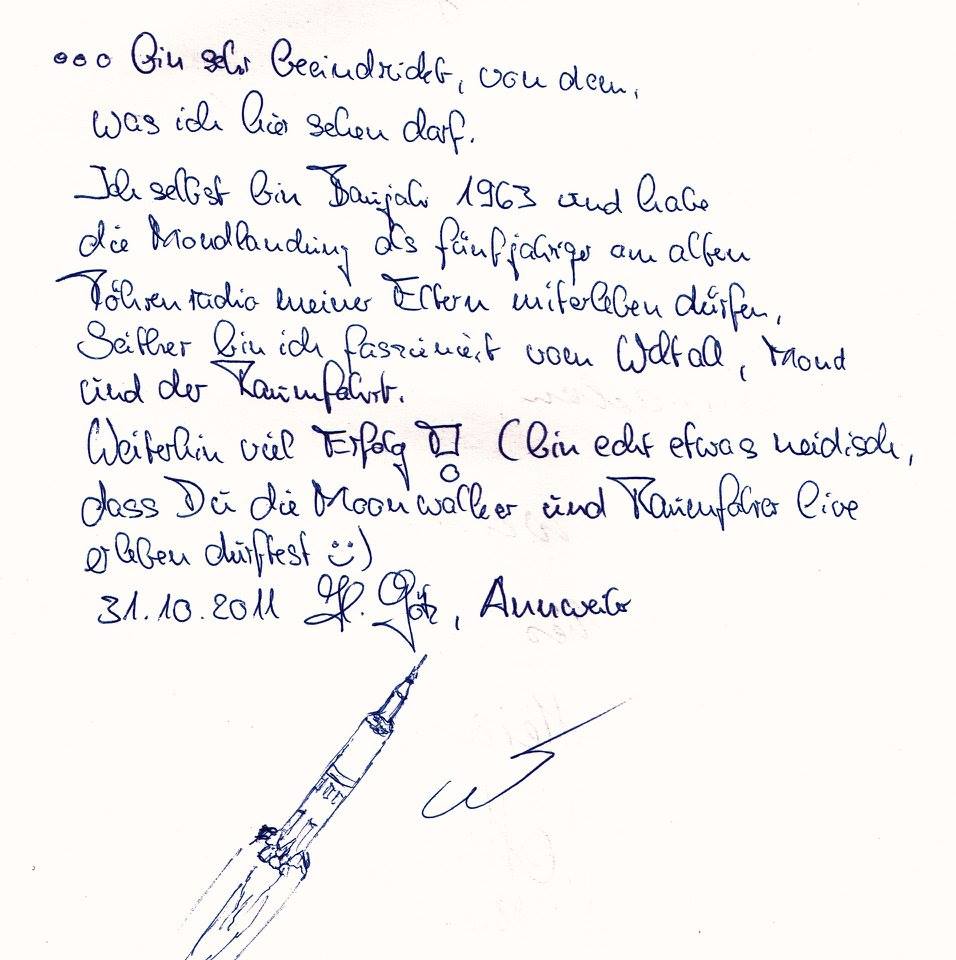 ... bin sehr beeindruckt, von dem,
was ich hier sehen darf.
Ich selbst bin Baujahr 1963 und habe
die Mondlandung als fünfjähriger am alten
Röhrenradio meiner Eltern miterleben dürfen,
Seither bin ich fasziniert vom Weltall, Mond
und der Raumfahrt.
Weiterhin viel Erfolg ! (bin echt etwas neidisch,
dass Du die Moonwalker und Raumfahrer live
erleben durftest :))
31.10.2011 H. Götz, Annweiler